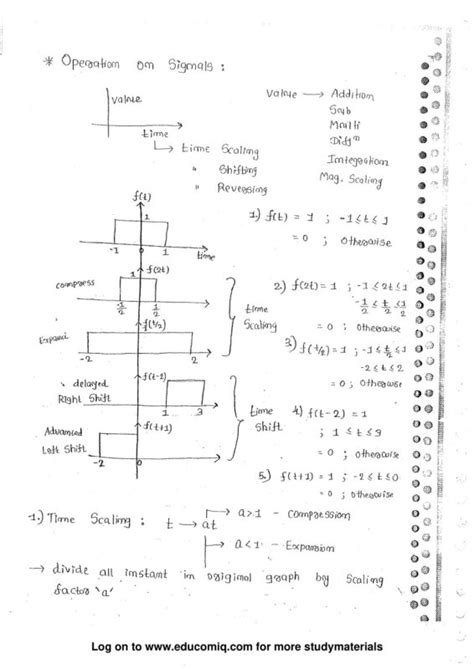 * Operation on Signals :
value
time
value → Addition
Sub
Multi
Diffn
Integration
Mag. Scaling
↳ time Scaling
" Shifting
" Reversing
f(t)
1
-1
1
time
1) f(t) = 1 ; -1≤t≤1
= 0 ; Otherwise
compress
f(2t)
-1/2
1/2
2) f(2t) = 1 ; -1≤2t≤1
-1/2 ≤ t ≤ 1/2
= 0 ; Otherwise
Expand
f(t/2)
-2
2
time
Scaling
3) f(t/2) = 1 ; -1≤t/2≤1
-2≤t≤2
= 0 ; Otherwise
delayed
Right Shift
f(t-1)
1
3
4) f(t-2) = 1
; 1≤t≤3
= 0 ; otherwise
Advanced
Left Shift
f(t+1)
-2
0
time
Shift
5) f(t+1) = 1 ; -2≤t≤0
= 0 ; otherwise
1.) Time Scaling : t → at
a>1 - Compression
a<1 - Expansion
→ divide all instant in original graph by Scaling
factor 'a'
Log on to www.educomiq.com for more studymaterials